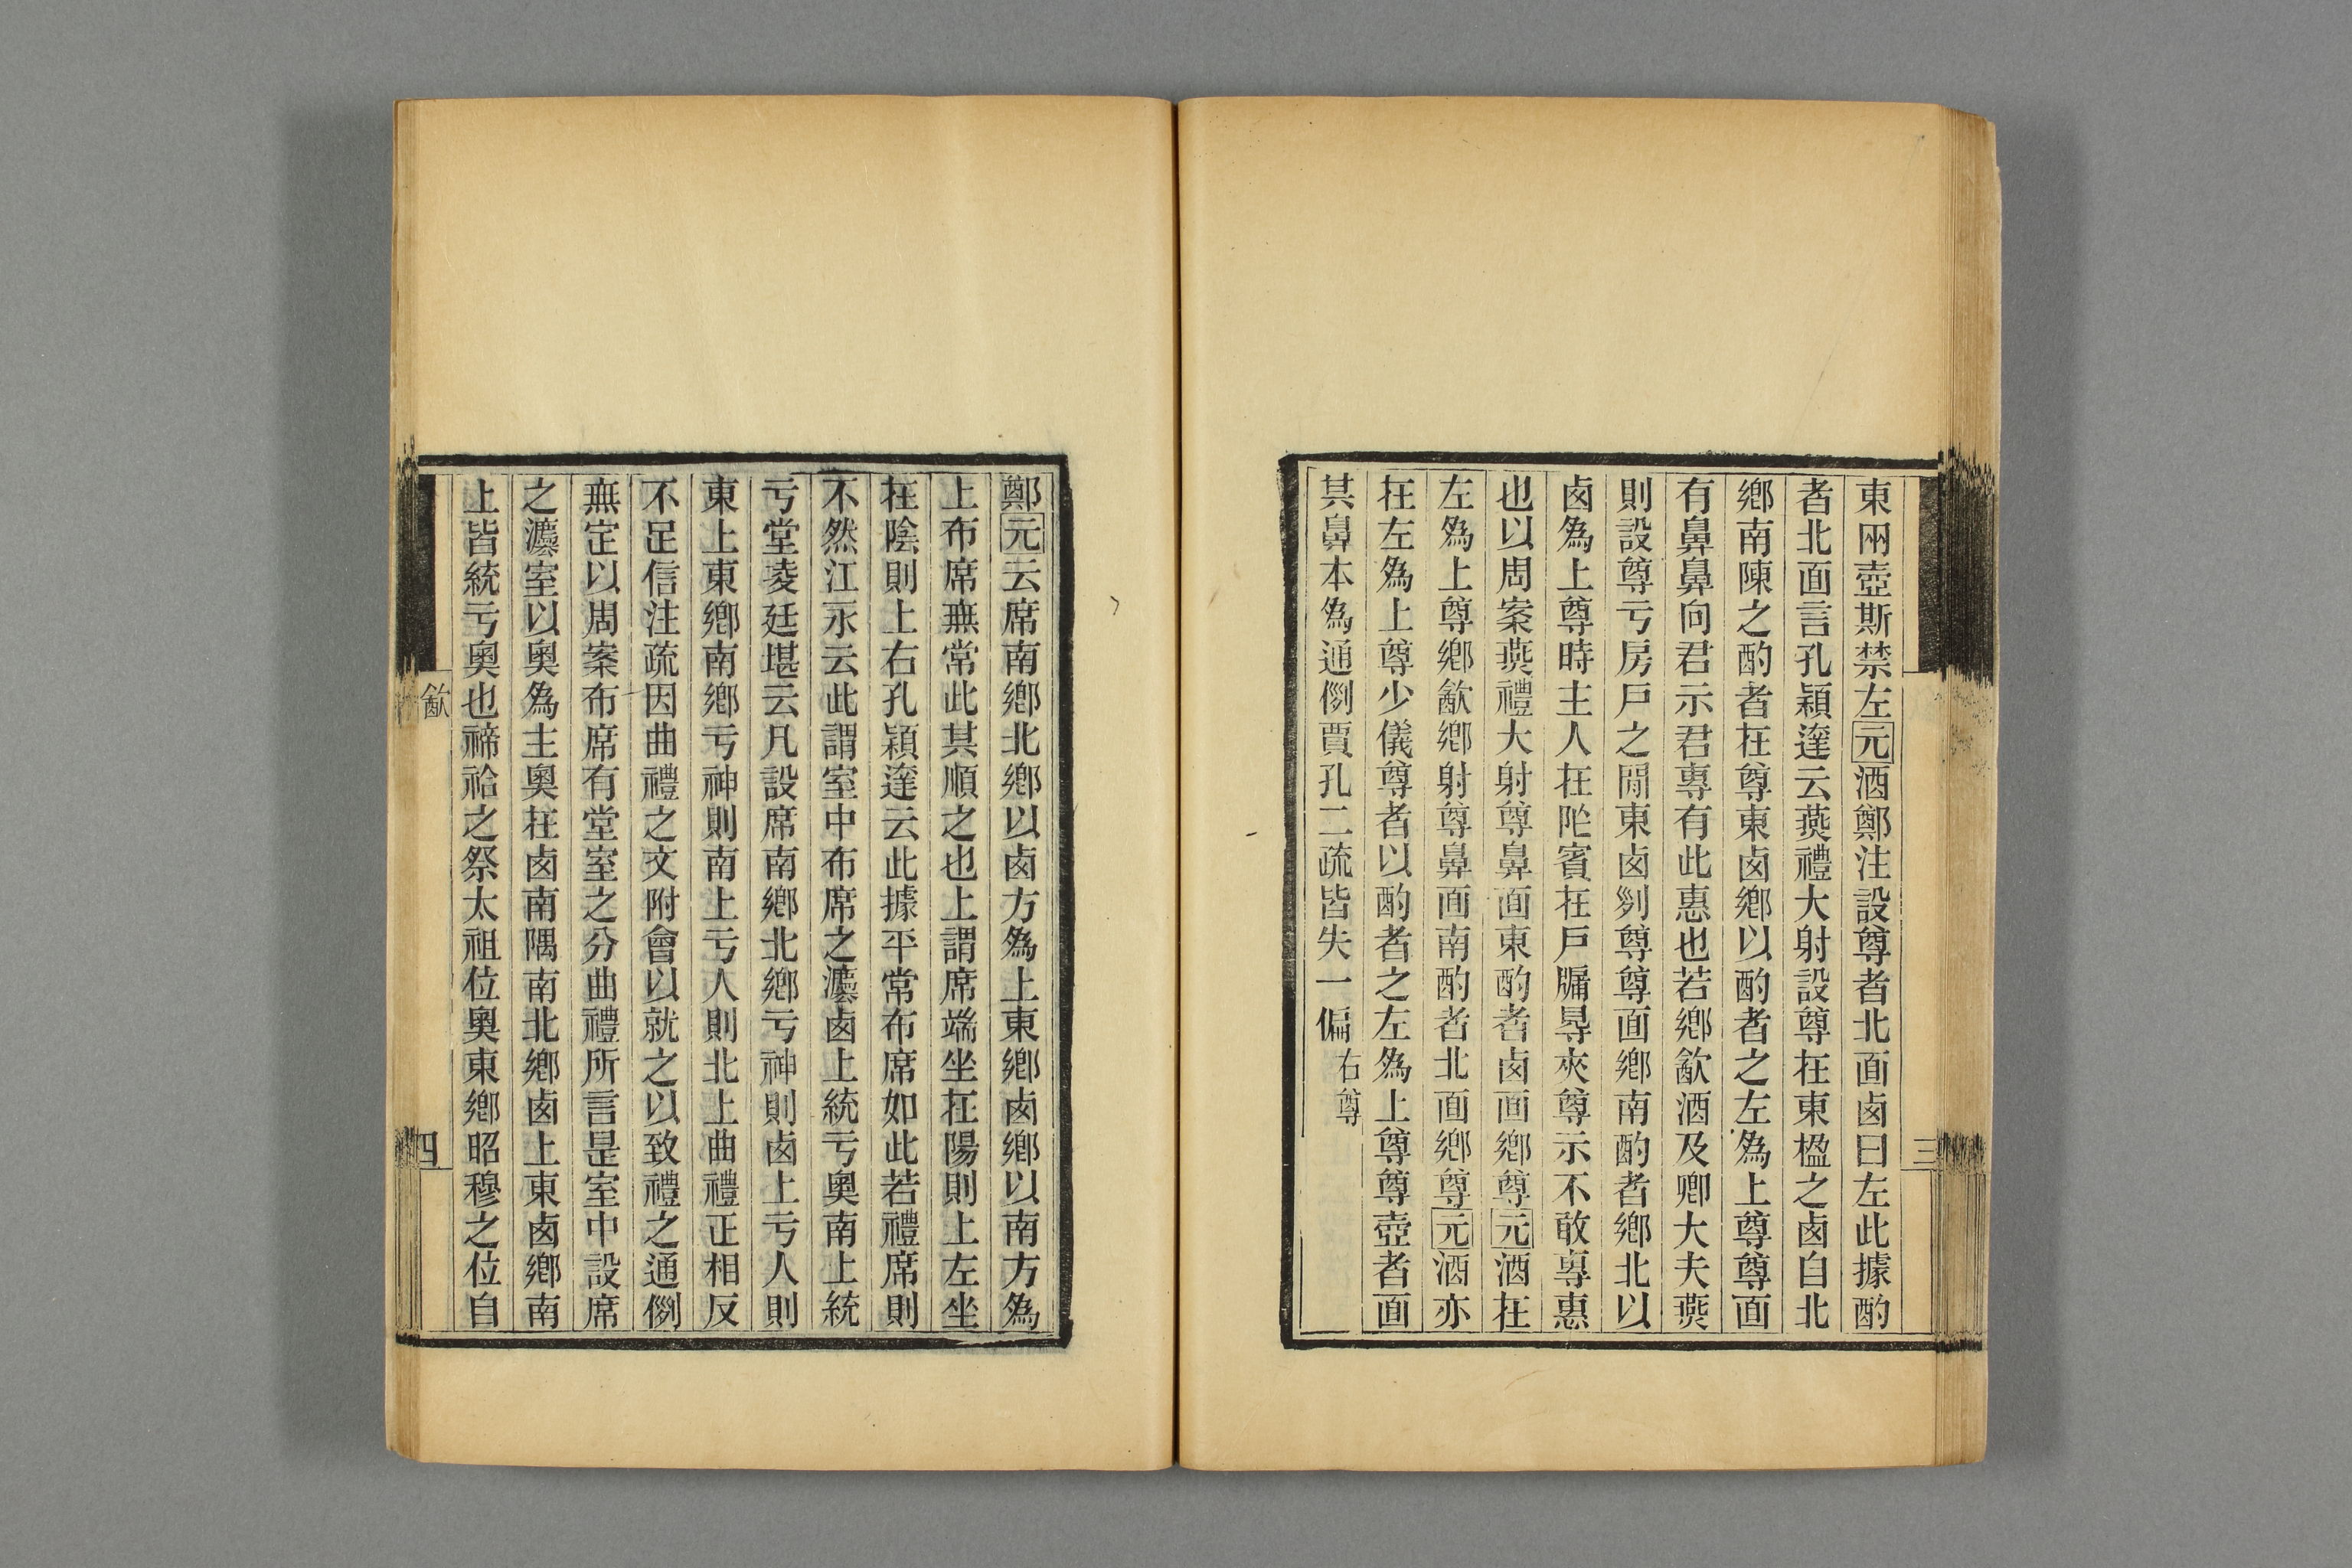 東兩壺斯禁左元酒鄭注設尊者北面鹵曰左此據酌
者北面言孔穎達云燕禮大射設尊在東楹之鹵自北
鄉南陳之酌者在尊東鹵鄉以酌者之左為上尊尊面
有鼻鼻向君示君專有此惠也若鄉歙酒及卿大夫燕
則設尊亏房戶之閒東鹵刿尊尊面鄉南酌者鄉北以
鹵為上尊時主人在阼賓在戶牖㝵夾尊示不敢專惠
也以周案燕禮大射尊鼻面東酌者鹵面鄉尊元酒在
左為上尊鄉歙鄉射尊鼻面南酌者北面鄉尊元酒亦
在左為上尊少儀尊者以酌者之左為上尊尊壺者面
其鼻本為通例賈孔二疏皆失一偏右尊
三
鄭元云席南鄉北鄉以鹵方為上東鄉鹵鄉以南方為
上布席無常此其順之也上謂席端坐在陽則上左坐
在陰則上右孔穎達云此據平常布席如此若禮席則
不然江永云此謂室中布席之灋鹵上統亏奧南上統
亏堂凌廷堪云凡設席南鄉北鄉亏神則鹵上亏人則
東上東鄉南鄉亏神則南上亏人則北上曲禮正相反
不足信注疏因曲禮之文附會以就之以致禮之通例
無定以周案布席有堂室之分曲禮所言昰室中設席
之灋室以奧為主奧在鹵南隅南北鄉鹵上東鹵鄉南
上皆統亏奧也禘祫之祭太祖位奧東鄉昭穆之位自
歙
四